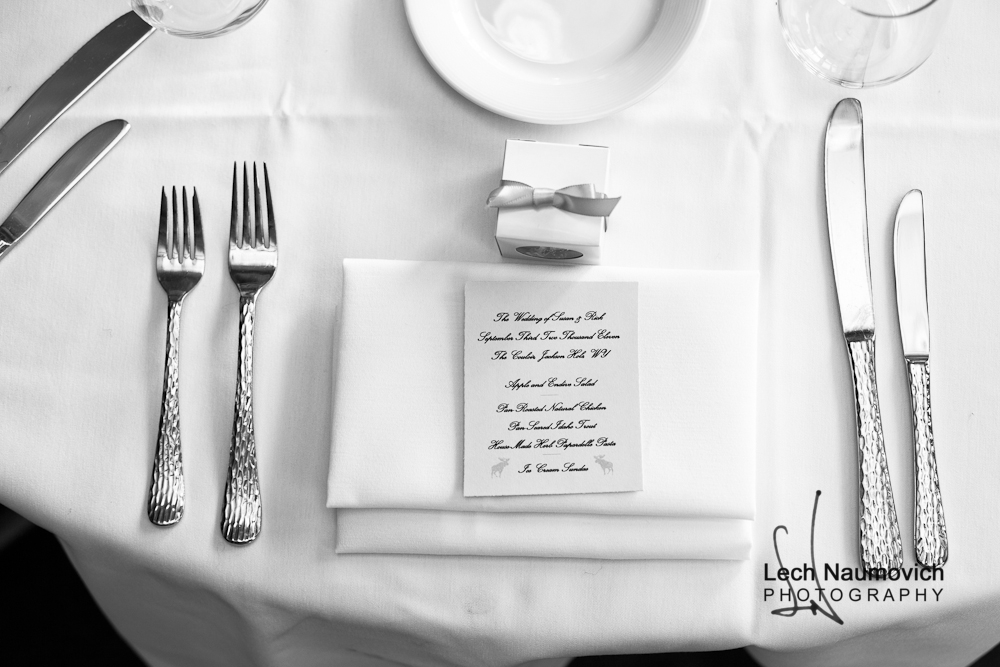 The Wedding of Susan & Rick
September Third Two Thousand Eleven
The Couloir, Jackson Hole, WY
Apple and Endive Salad
Pan Roasted Natural Chicken
Pan-Seared Idaho Trout
House-Made Herb Papardelle Pasta
Ice Cream Sundae
Lech Naumovich
PHOTOGRAPHY